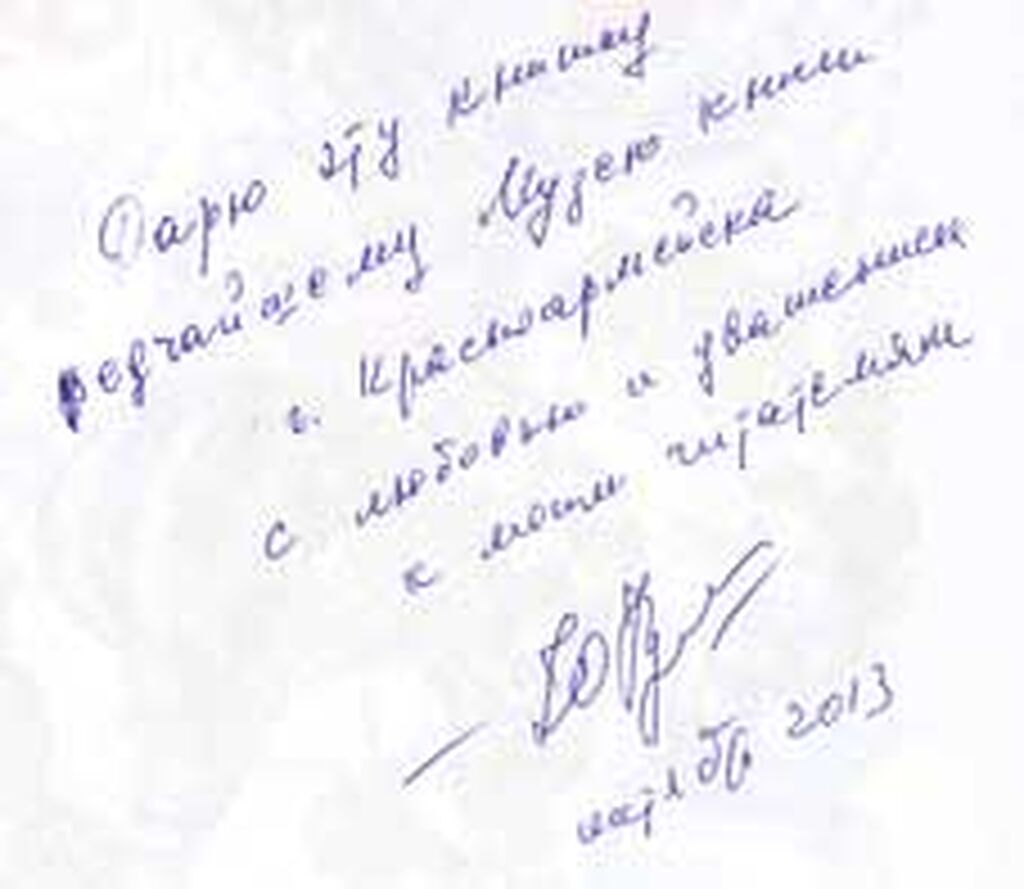 Дарю эту книжку
редчайшему Музею книги
г. Красноармейска
с любовью и уважением
к моим читателям
2013